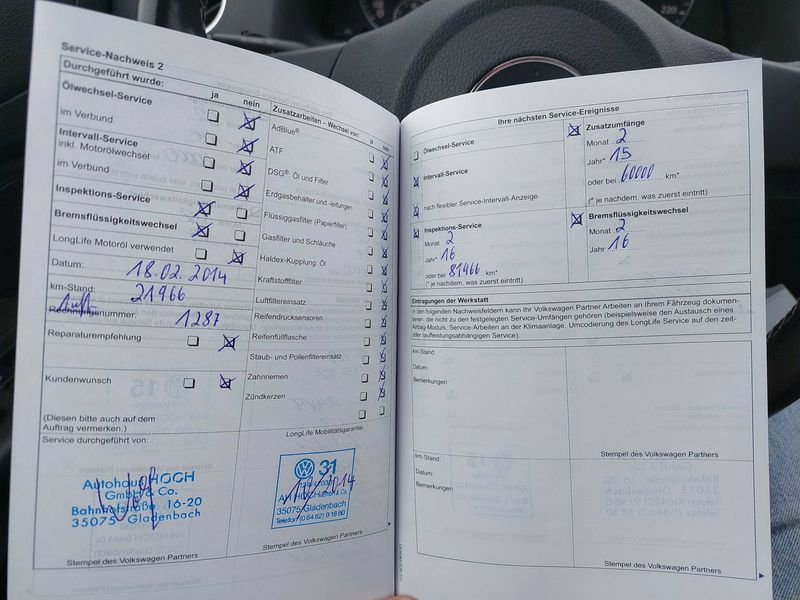 Service-Nachweis 2
Durchgeführt wurde:
ja nein
Ölwechsel-Service
im Verbund
Intervall-Service
inkl. Motorölwechsel
im Verbund
Inspektions-Service
Bremsflüssigkeitswechsel
LongLife Motoröl verwendet
Datum: 18.02.2014
km-Stand: 21966
nummer: 1287
Reparaturempfehlung
Kundenwunsch
(Diesen bitte auch auf dem
Auftrag vermerken.)
Service durchgeführt von:
Autohaus HOCH
GmbH & Co.
Bahnhofstraße 16-20
35075 Gladenbach
Stempel des Volkswagen Partners
Zusatzarbeiten – Wechsel von: ja nein
AdBlue®
ATF
DSG®: Öl und Filter
Erdgasbehälter und -leitungen
Flüssiggasfilter (Papierfilter)
Gasfilter und Schläuche
Haldex-Kupplung: Öl
Kraftstofffilter
Luftfiltereinsatz
Reifendrucksensoren
Reifenfüllflasche
Staub- und Pollenfiltereinsatz
Zahnriemen
Zündkerzen
LongLife Mobilitätsgarantie:
31
2014
35075 Gladenbach
Telefon (0 64 62) 9 16 60
Stempel des Volkswagen Partners
Ihre nächsten Service-Ereignisse
Ölwechsel-Service
Intervall-Service
nach flexibler Service-Intervall-Anzeige
Inspektions-Service
Monat 2
Jahr* 16
oder bei 81966 km*
(* je nachdem, was zuerst eintritt)
Zusatzumfänge
Monat 2
Jahr* 15
oder bei 60000 km*
(* je nachdem, was zuerst eintritt)
Bremsflüssigkeitswechsel
Monat 2
Jahr 16
Eintragungen der Werkstatt
In den folgenden Nachweisfeldern kann Ihr Volkswagen Partner Arbeiten an Ihrem Fahrzeug dokumen-
tieren, die nicht zu den festgelegten Service-Umfängen gehören (beispielsweise den Austausch eines
Airbag-Moduls, Service-Arbeiten an der Klimaanlage, Umcodierung des LongLife Service auf den zeit-
oder laufleistungsabhängigen Service).
km-Stand
Datum
Bemerkungen:
Stempel des Volkswagen Partners
km-Stand:
Datum:
Bemerkungen:
Stempel des Volkswagen Partners
220